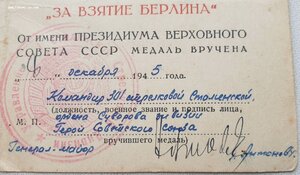 „ЗА ВЗЯТИЕ БЕРЛИНА"
ОТ ИМЕНИ ПРЕЗИДИУМА ВЕРХОВНОГО
СОВЕТА СССР МЕДАЛЬ ВРУЧЕНА
"6" декабря 1945 года.
Командир 301 стрелковой Сталинской,
(должность, воинское звание и подпись лица,
ордена Суворова дивизии
М. П. Герой Советского Союза
вручившего медаль)
Генерал-майор
Антонов